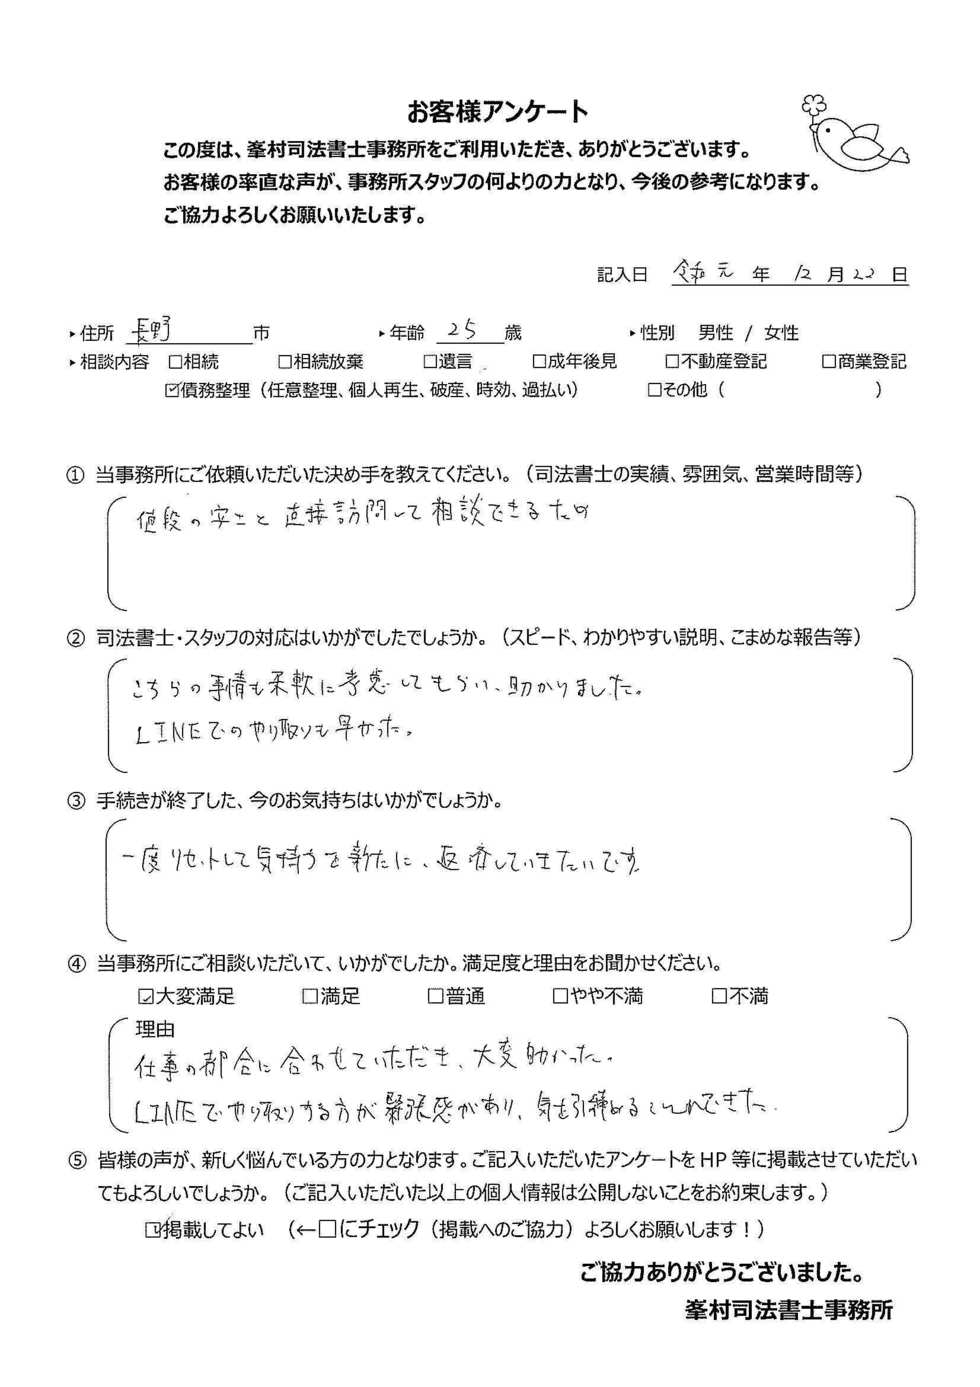 お客様アンケート
この度は、峯村司法書士事務所をご利用いただき、ありがとうございます。
お客様の率直な声が、事務所スタッフの何よりの力となり、今後の参考になります。
ご協力よろしくお願いいたします。
記入日 令和元 年 12 月 22 日
▸住所 長野 市 ▸年齢 25 歳 ▸性別 男性 / 女性
▸相談内容 □相続 □相続放棄 □遺言 □成年後見 □不動産登記 □商業登記
☑債務整理（任意整理、個人再生、破産、時効、過払い） □その他（ ）
① 当事務所にご依頼いただいた決め手を教えてください。（司法書士の実績、雰囲気、営業時間等）
値段の安さと直接訪問して相談できるため
② 司法書士・スタッフの対応はいかがでしたでしょうか。（スピード、わかりやすい説明、こまめな報告等）
こちらの事情も柔軟に考慮してもらい、助かりました。
LINEでのやり取りも早かった。
③ 手続きが終了した、今のお気持ちはいかがでしょうか。
一度リセットして気持ちを新たに、返済していきたいです。
④ 当事務所にご相談いただいて、いかがでしたか。満足度と理由をお聞かせください。
☑大変満足 □満足 □普通 □やや不満 □不満
理由
仕事の都合に合わせていただき、大変助かった。
LINEでやり取りする方が緊張感があり、気を引締めることができた。
⑤ 皆様の声が、新しく悩んでいる方の力となります。ご記入いただいたアンケートをHP等に掲載させていただい
てもよろしいでしょうか。（ご記入いただいた以上の個人情報は公開しないことをお約束します。）
☑掲載してよい （←□にチェック（掲載へのご協力）よろしくお願いします！）
ご協力ありがとうございました。
峯村司法書士事務所